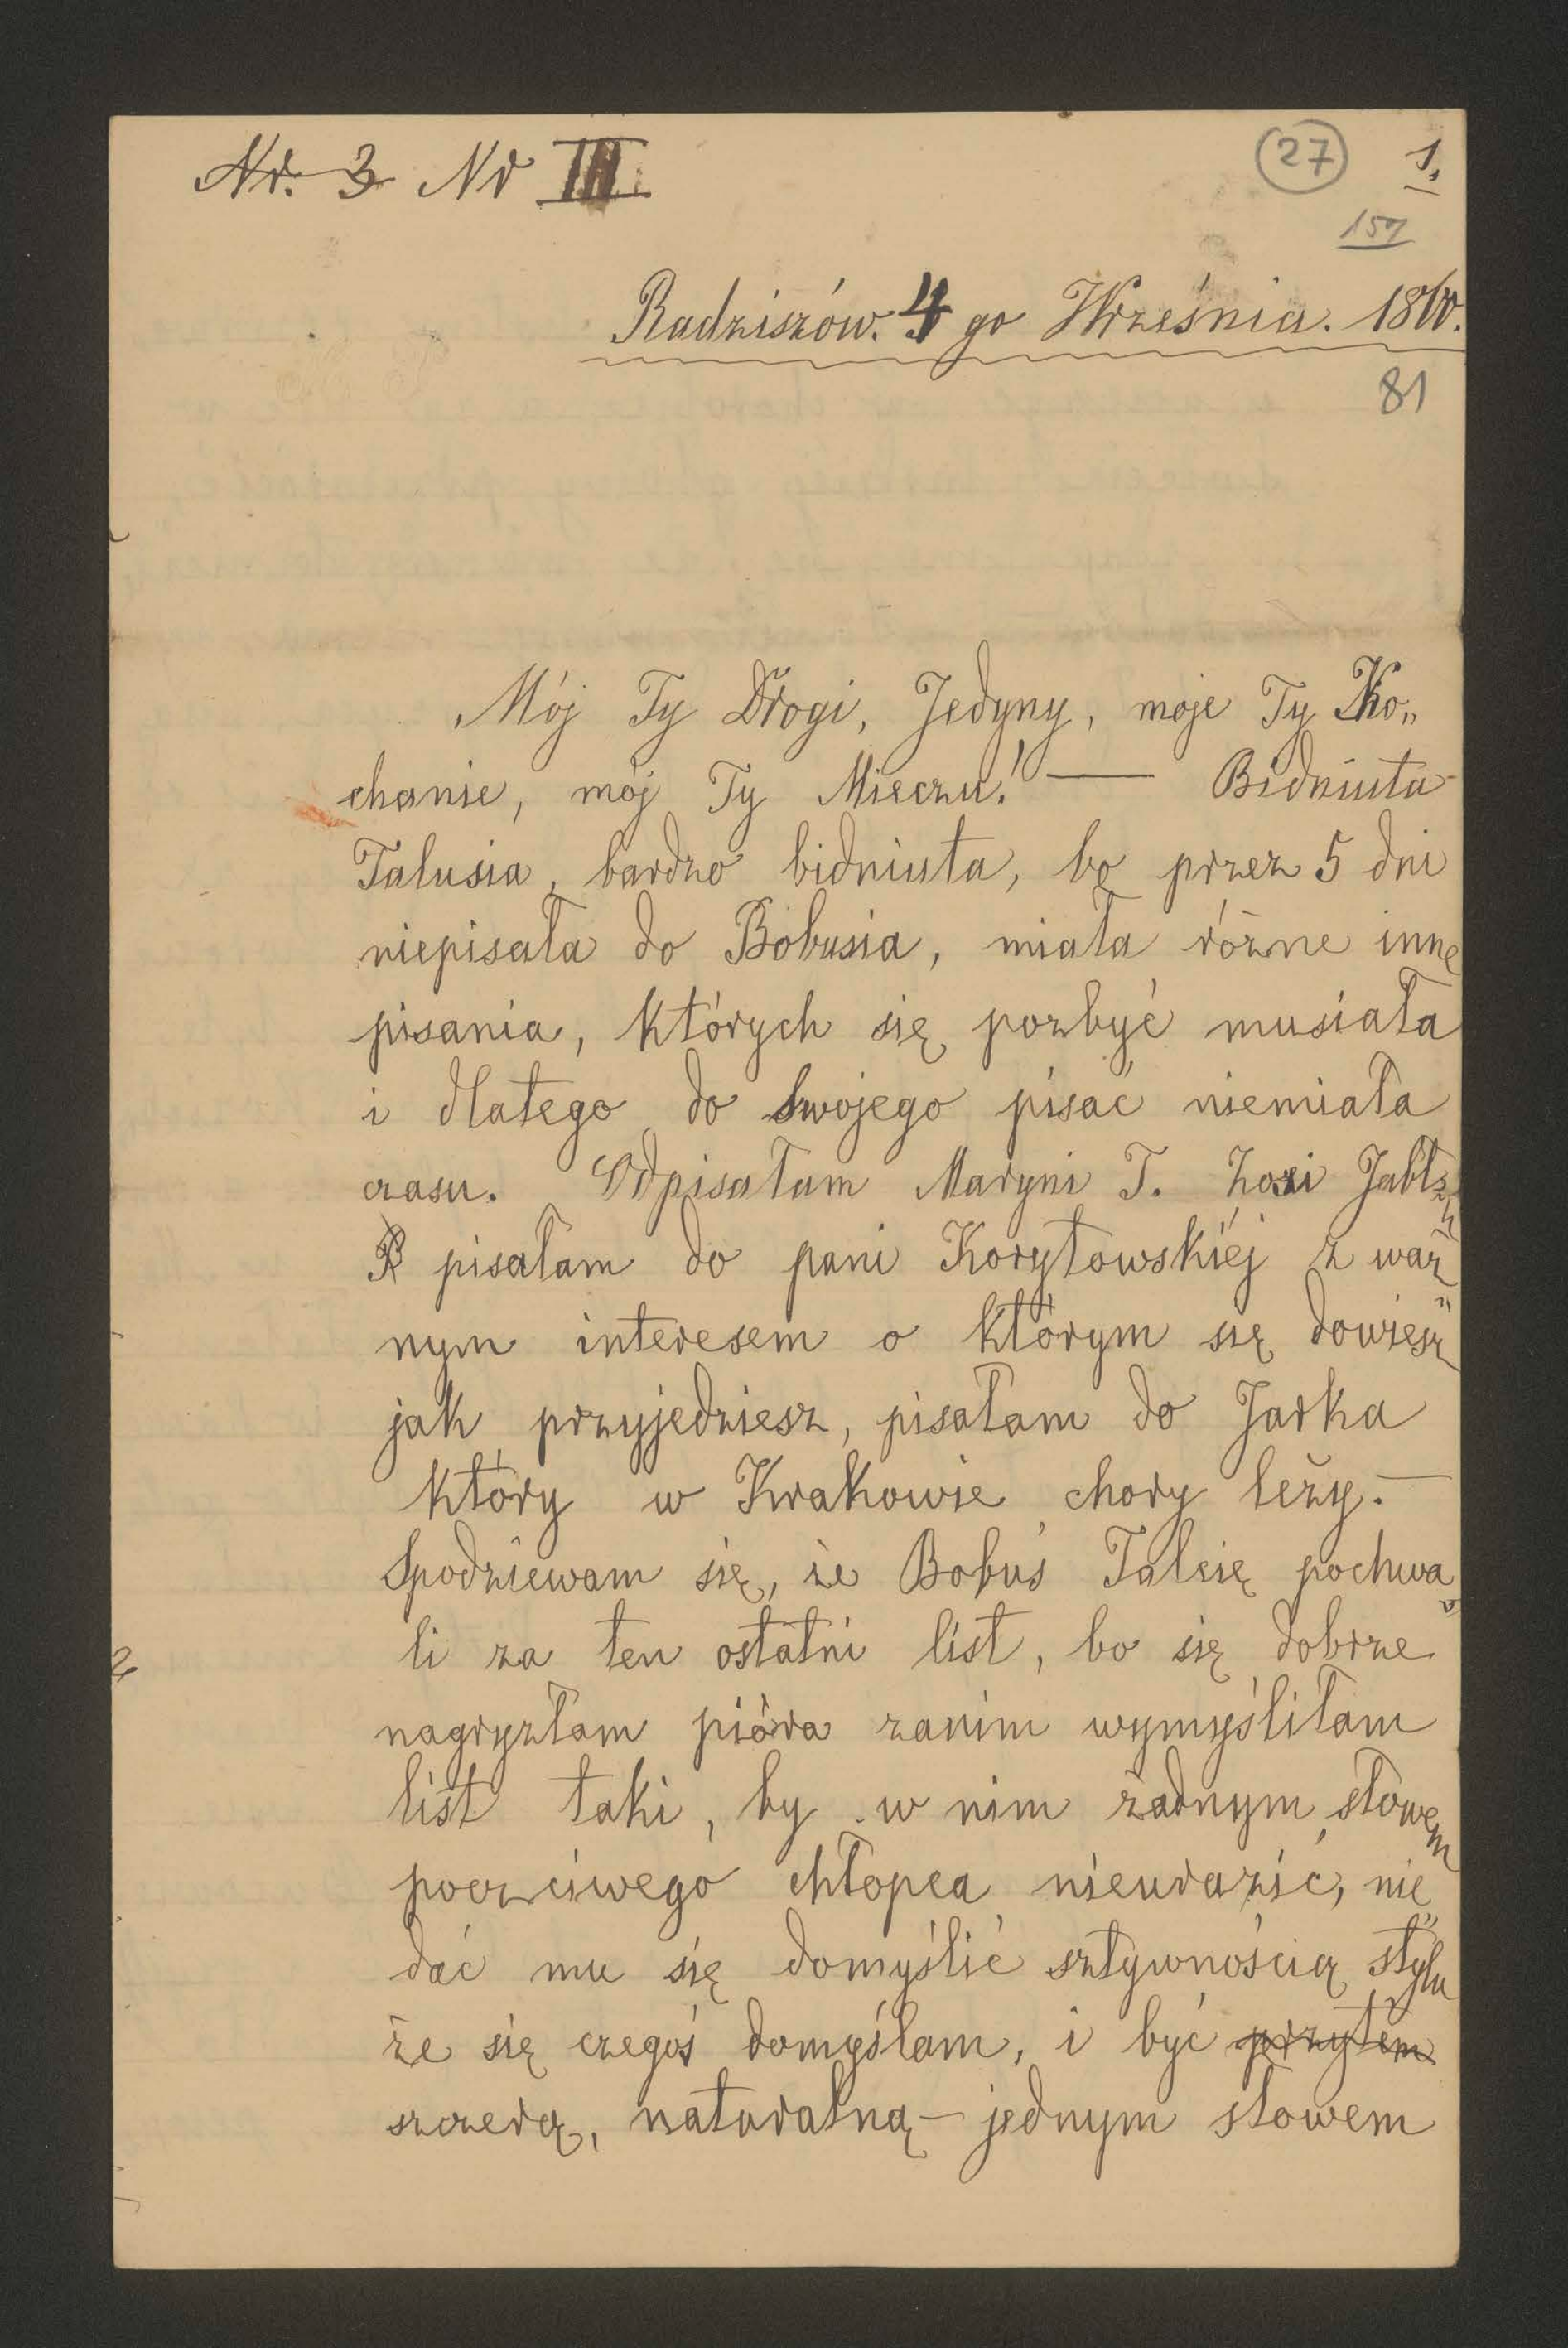 Nr. 3 Nr III
27 1.
157
Radziszów. 4 go Września. 1860.
81
Mój Ty Drogi, Jedyny, moje Ty Ko„
chanie, mój Ty Mieczu! — Bidniuta
Talusia, bardzo bidniuta, bo przez 5 dni
niepisała do Bobusia, miała różne inne
pisania, których się pozbyć musiała
i dlatego do Swojego pisać niemiała
czasu. Odpisałam Maryni T. Zosi
pisałam do pani Korytowskiéj z waż„
nym interesem o którym się dowiesz
jak przyjedziesz, pisałam do Jarka
który w Krakowie chory leży. —
Spodziewam się, że Bobuś Talcię pochwa„
li za ten ostatni list, bo się dobrze
nagryzłam pióra zanim wymyśliłam
list taki, by w nim żadnym słowem
poczciwego chłopca nieurazić, nie„
dać mu się domyślić sztywnością stylu
że się czegoś domyślam, i być przytem
szczerą, naturalną — jednym słowem